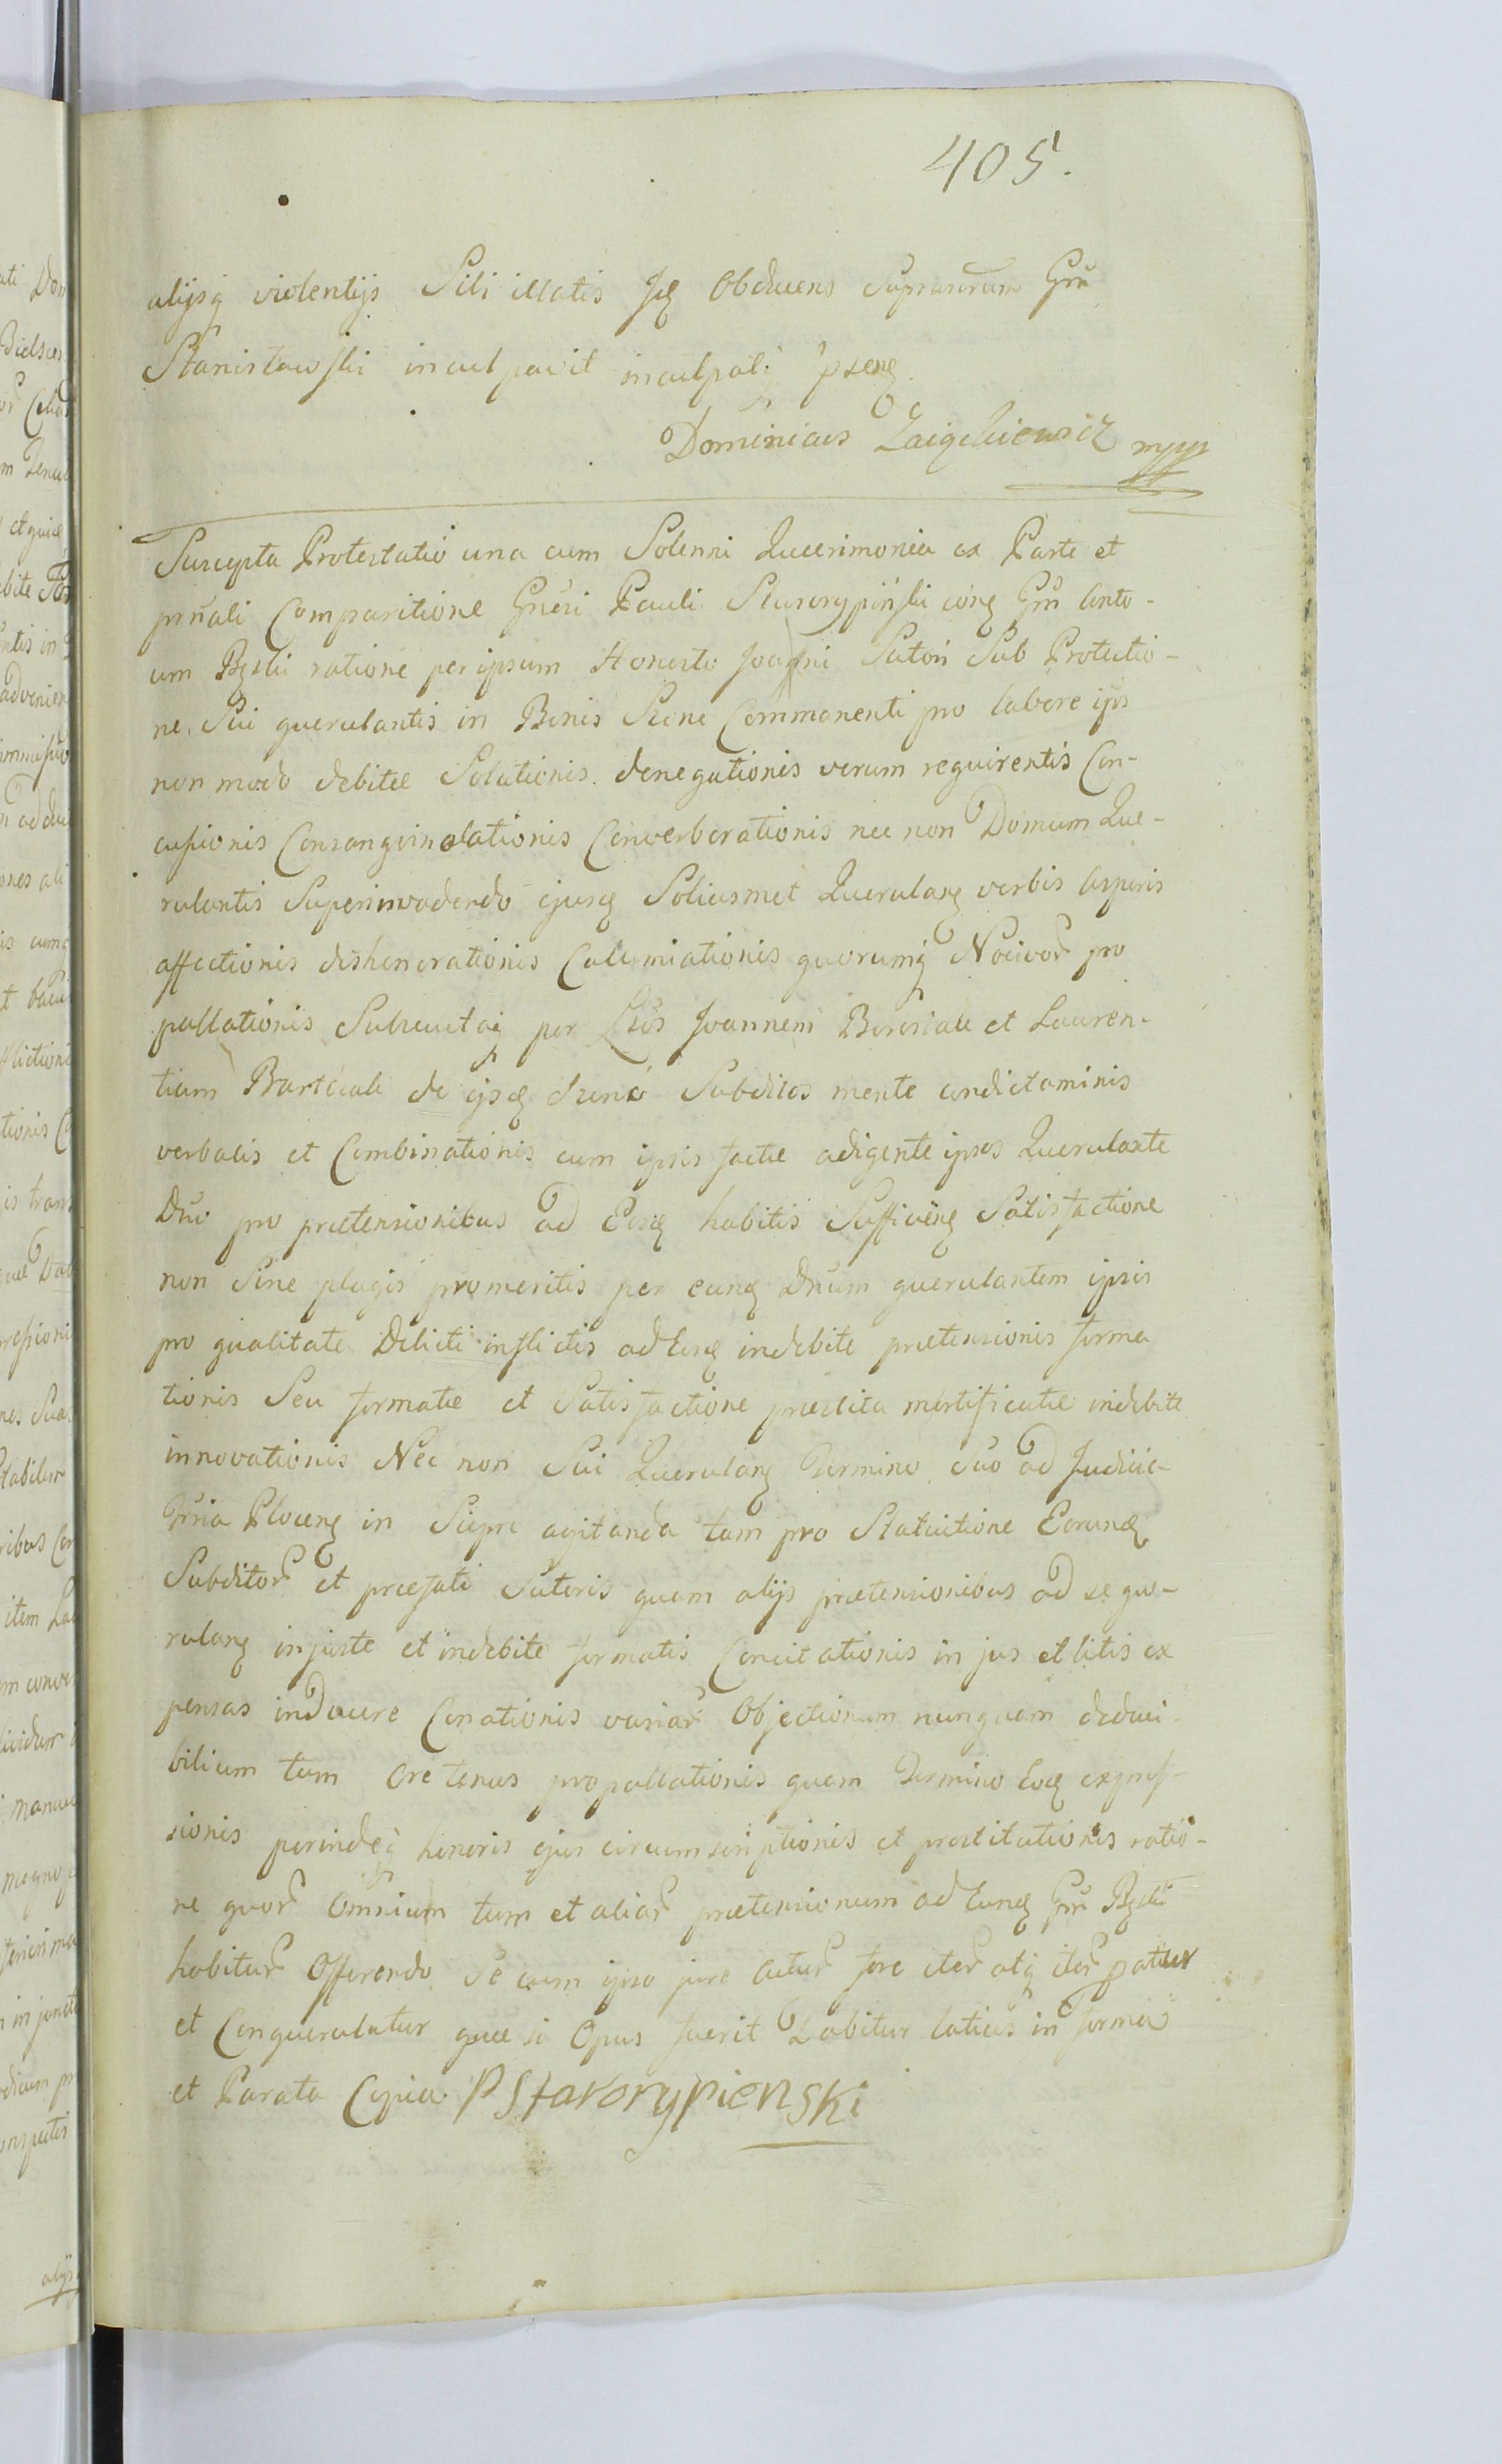 405.
alijsq violentijs Sibi illatis Jq Obducens Suprascrum Grũ
Stanisławski inculpavit inculpatq psenq
Dominicus mpp
Suscepta Protestatio una cum Solenni Querimonia ex Parte et
prñali Comparitione Gnẽri Pauli Starorypiński conq Grũ Anto-
um Bzski ratione per ipsum Honesto Joañni Sutori Sub Protectio-
ne Sui querulantis in Bonis Szeno Commanenti pro labore ijs
non modo debitæ Solutionis denegationis verum requirentis Con-
cussionis Consanguinolationis Converberationis nec non Domum Que-
rulantis Superinvadendo ejusq Soliusmet Querulanq verbis asperis
affectionis dishonorationis Calumiationis quorumq Nocivoꝝ pro
pallationis Subsecutaq per Lbos Joannem et Lauren-
tium de ijsq Szeno Subditos mente condictaminis
verbalis et Combinationis cum ipsis factæ adigente ipsos Querulante
Dño pro prætensionibus ad Eosq habitis Sufficienq Satisfactione
non Sine plagis promeritis per eunq Dñum querulantem ipsis
pro qualitate Delicti inflictis ad Eosq indebite prætensionis forma
tionis Seu formatæ et Satisfactione præstita mortificatæ indebite
innovationis Nec non Sui Querulanq Termino Suo ad Judicia
Trria Plocenq in Sieprc agitanda tam pro Statuitione Eorunq
Subditoꝝ et præfati Sutoris quam alijs prætensionibus ad se que-
rulanq injuste et indebite formatis Concitationis in jus et litis ex
pensas inducere Conationis variaꝝ Objectionum nunquam deduci-
bilium tam Ore tenus propallationis quam Termino Eoq expres-
sionis perindeq honoris ejus circumscriptionis et prostitutionis ratio-
ne quoꝝ Omnium tum et aliaꝝ prætensionum ad Eunq Grũ Bzski
habituꝝ Offerendo Se cum ipso jure actuꝝ fore iteꝝ atq iteꝝ
et Conquerulatur quæ si Opus fuerit Dabitur latius in forma
et Parata Copia P Starorypienski